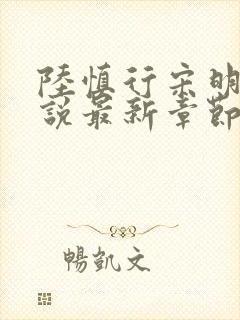 陸慎行宋明
說最新章節
暢凱文